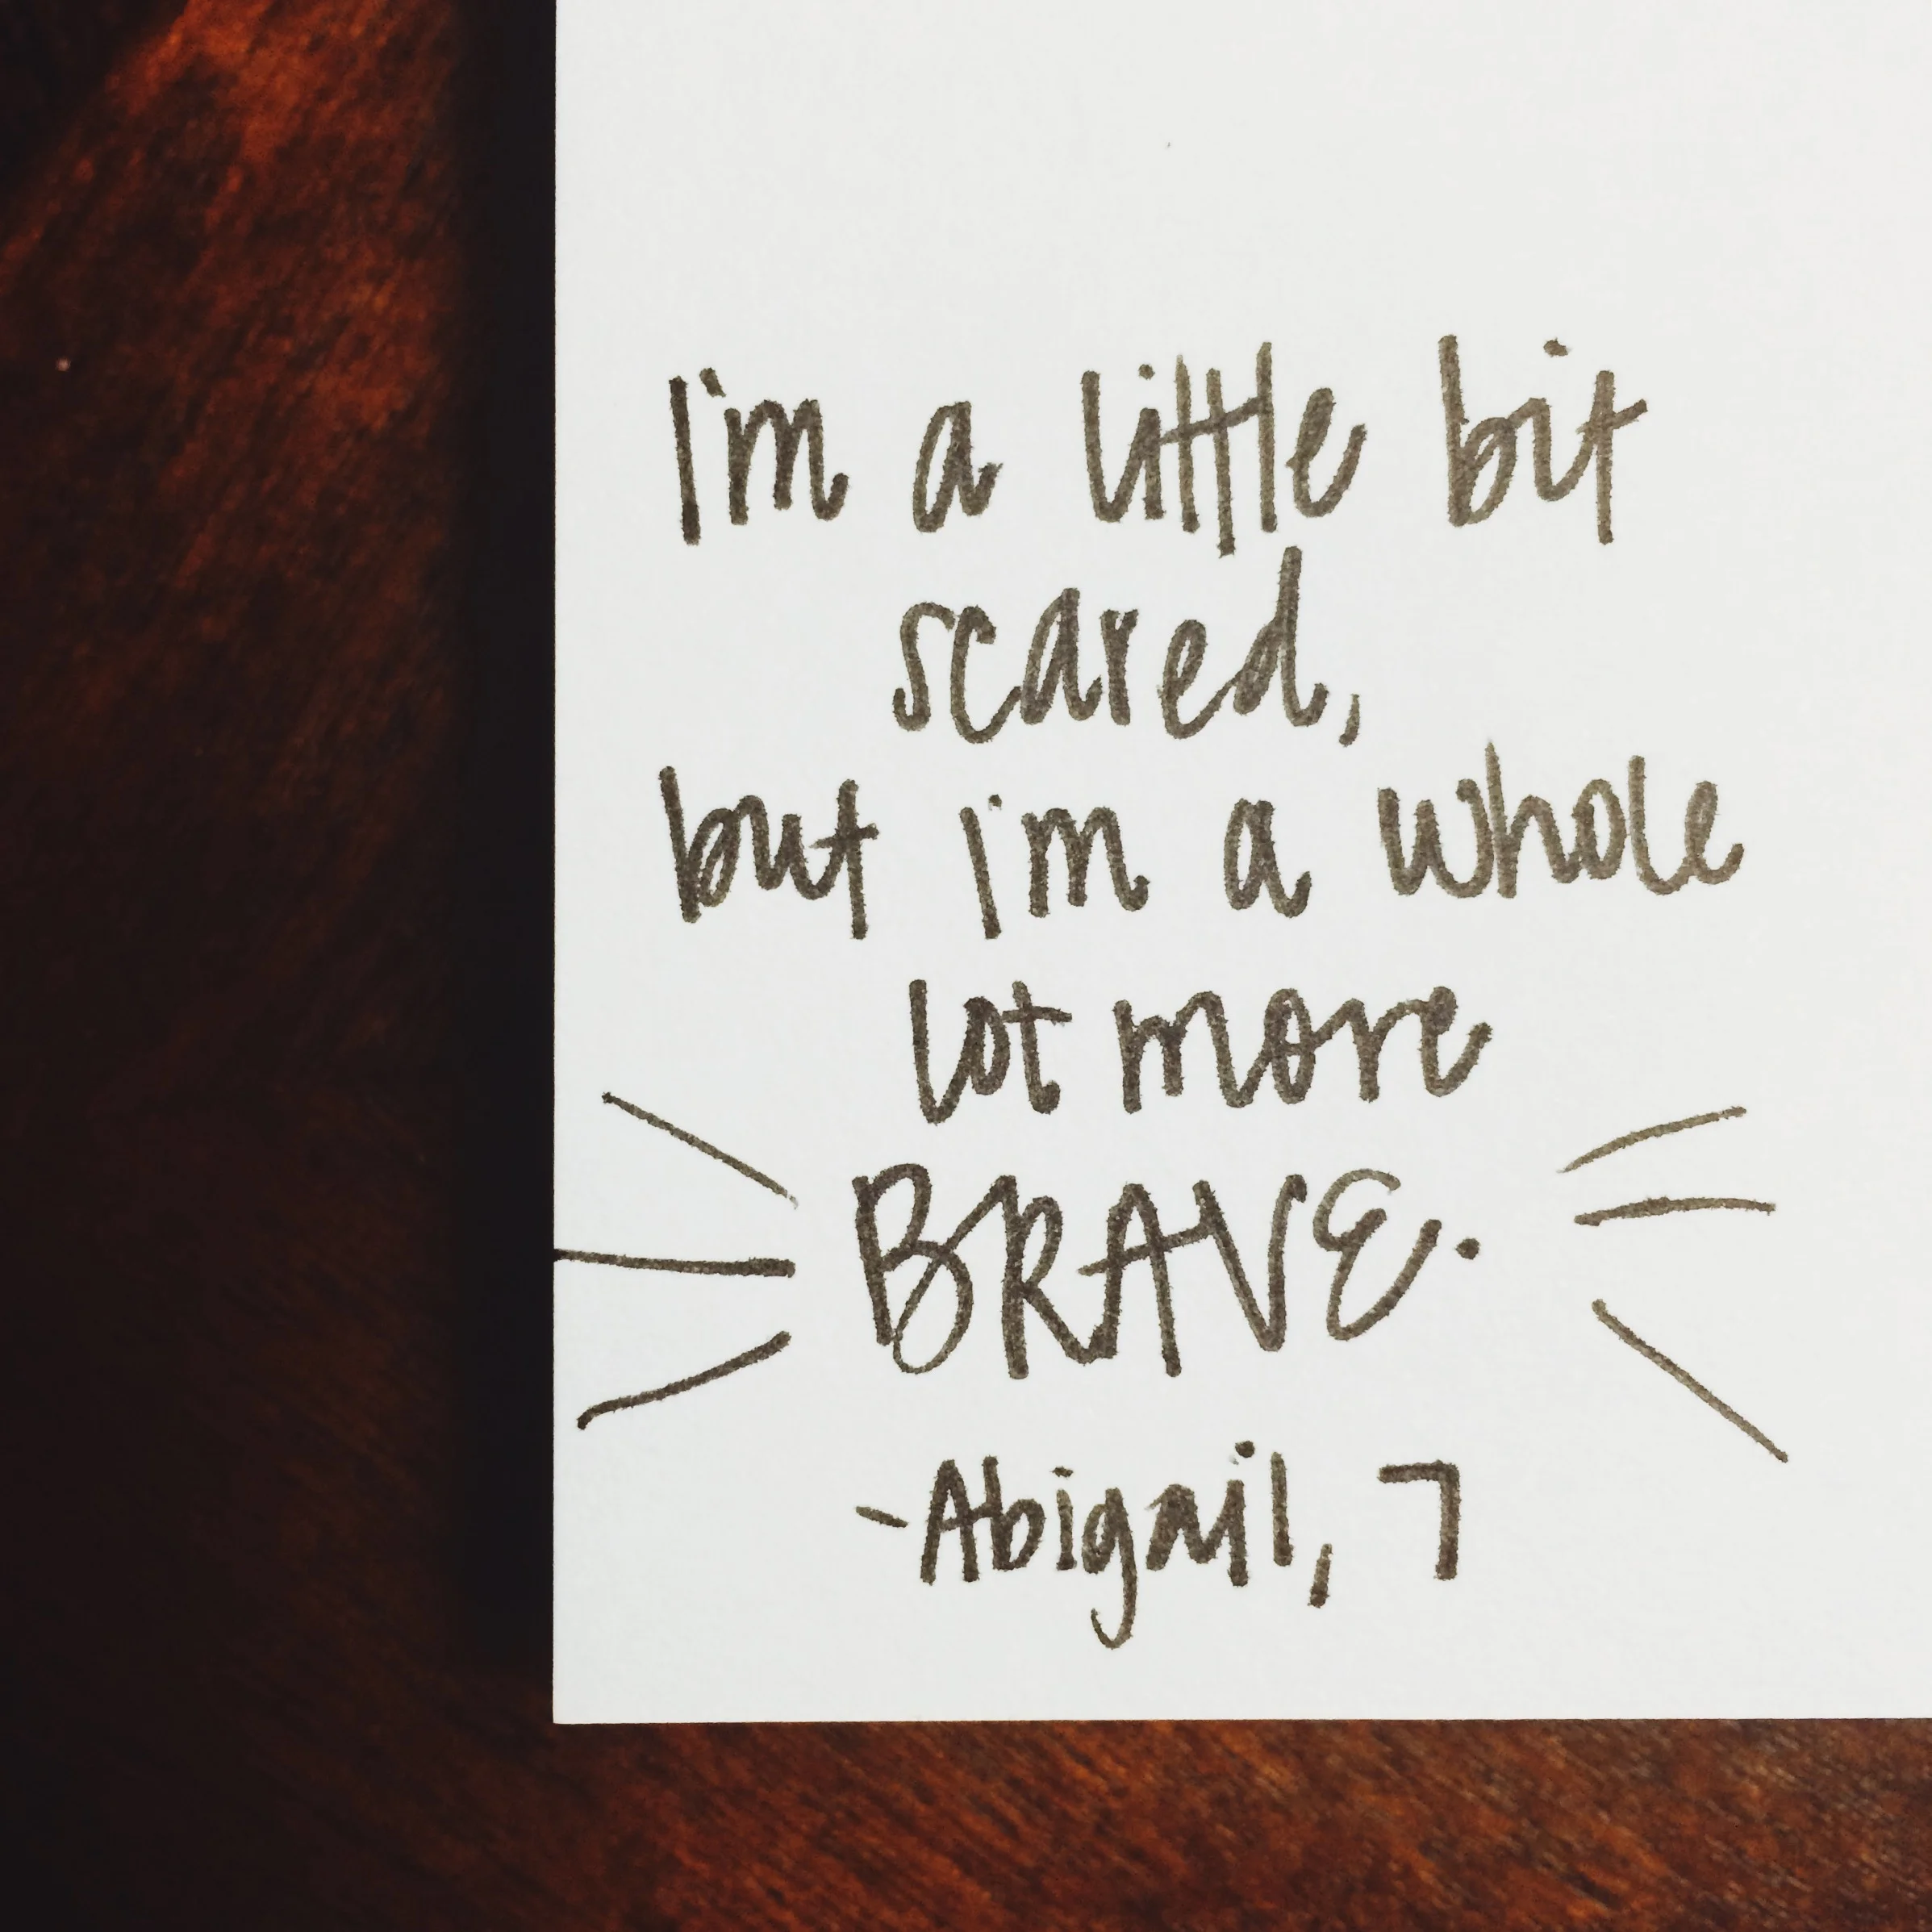 I'm a little bit
scared,
but i'm a whole
lot more
BRAVE.
-Abigail, 7